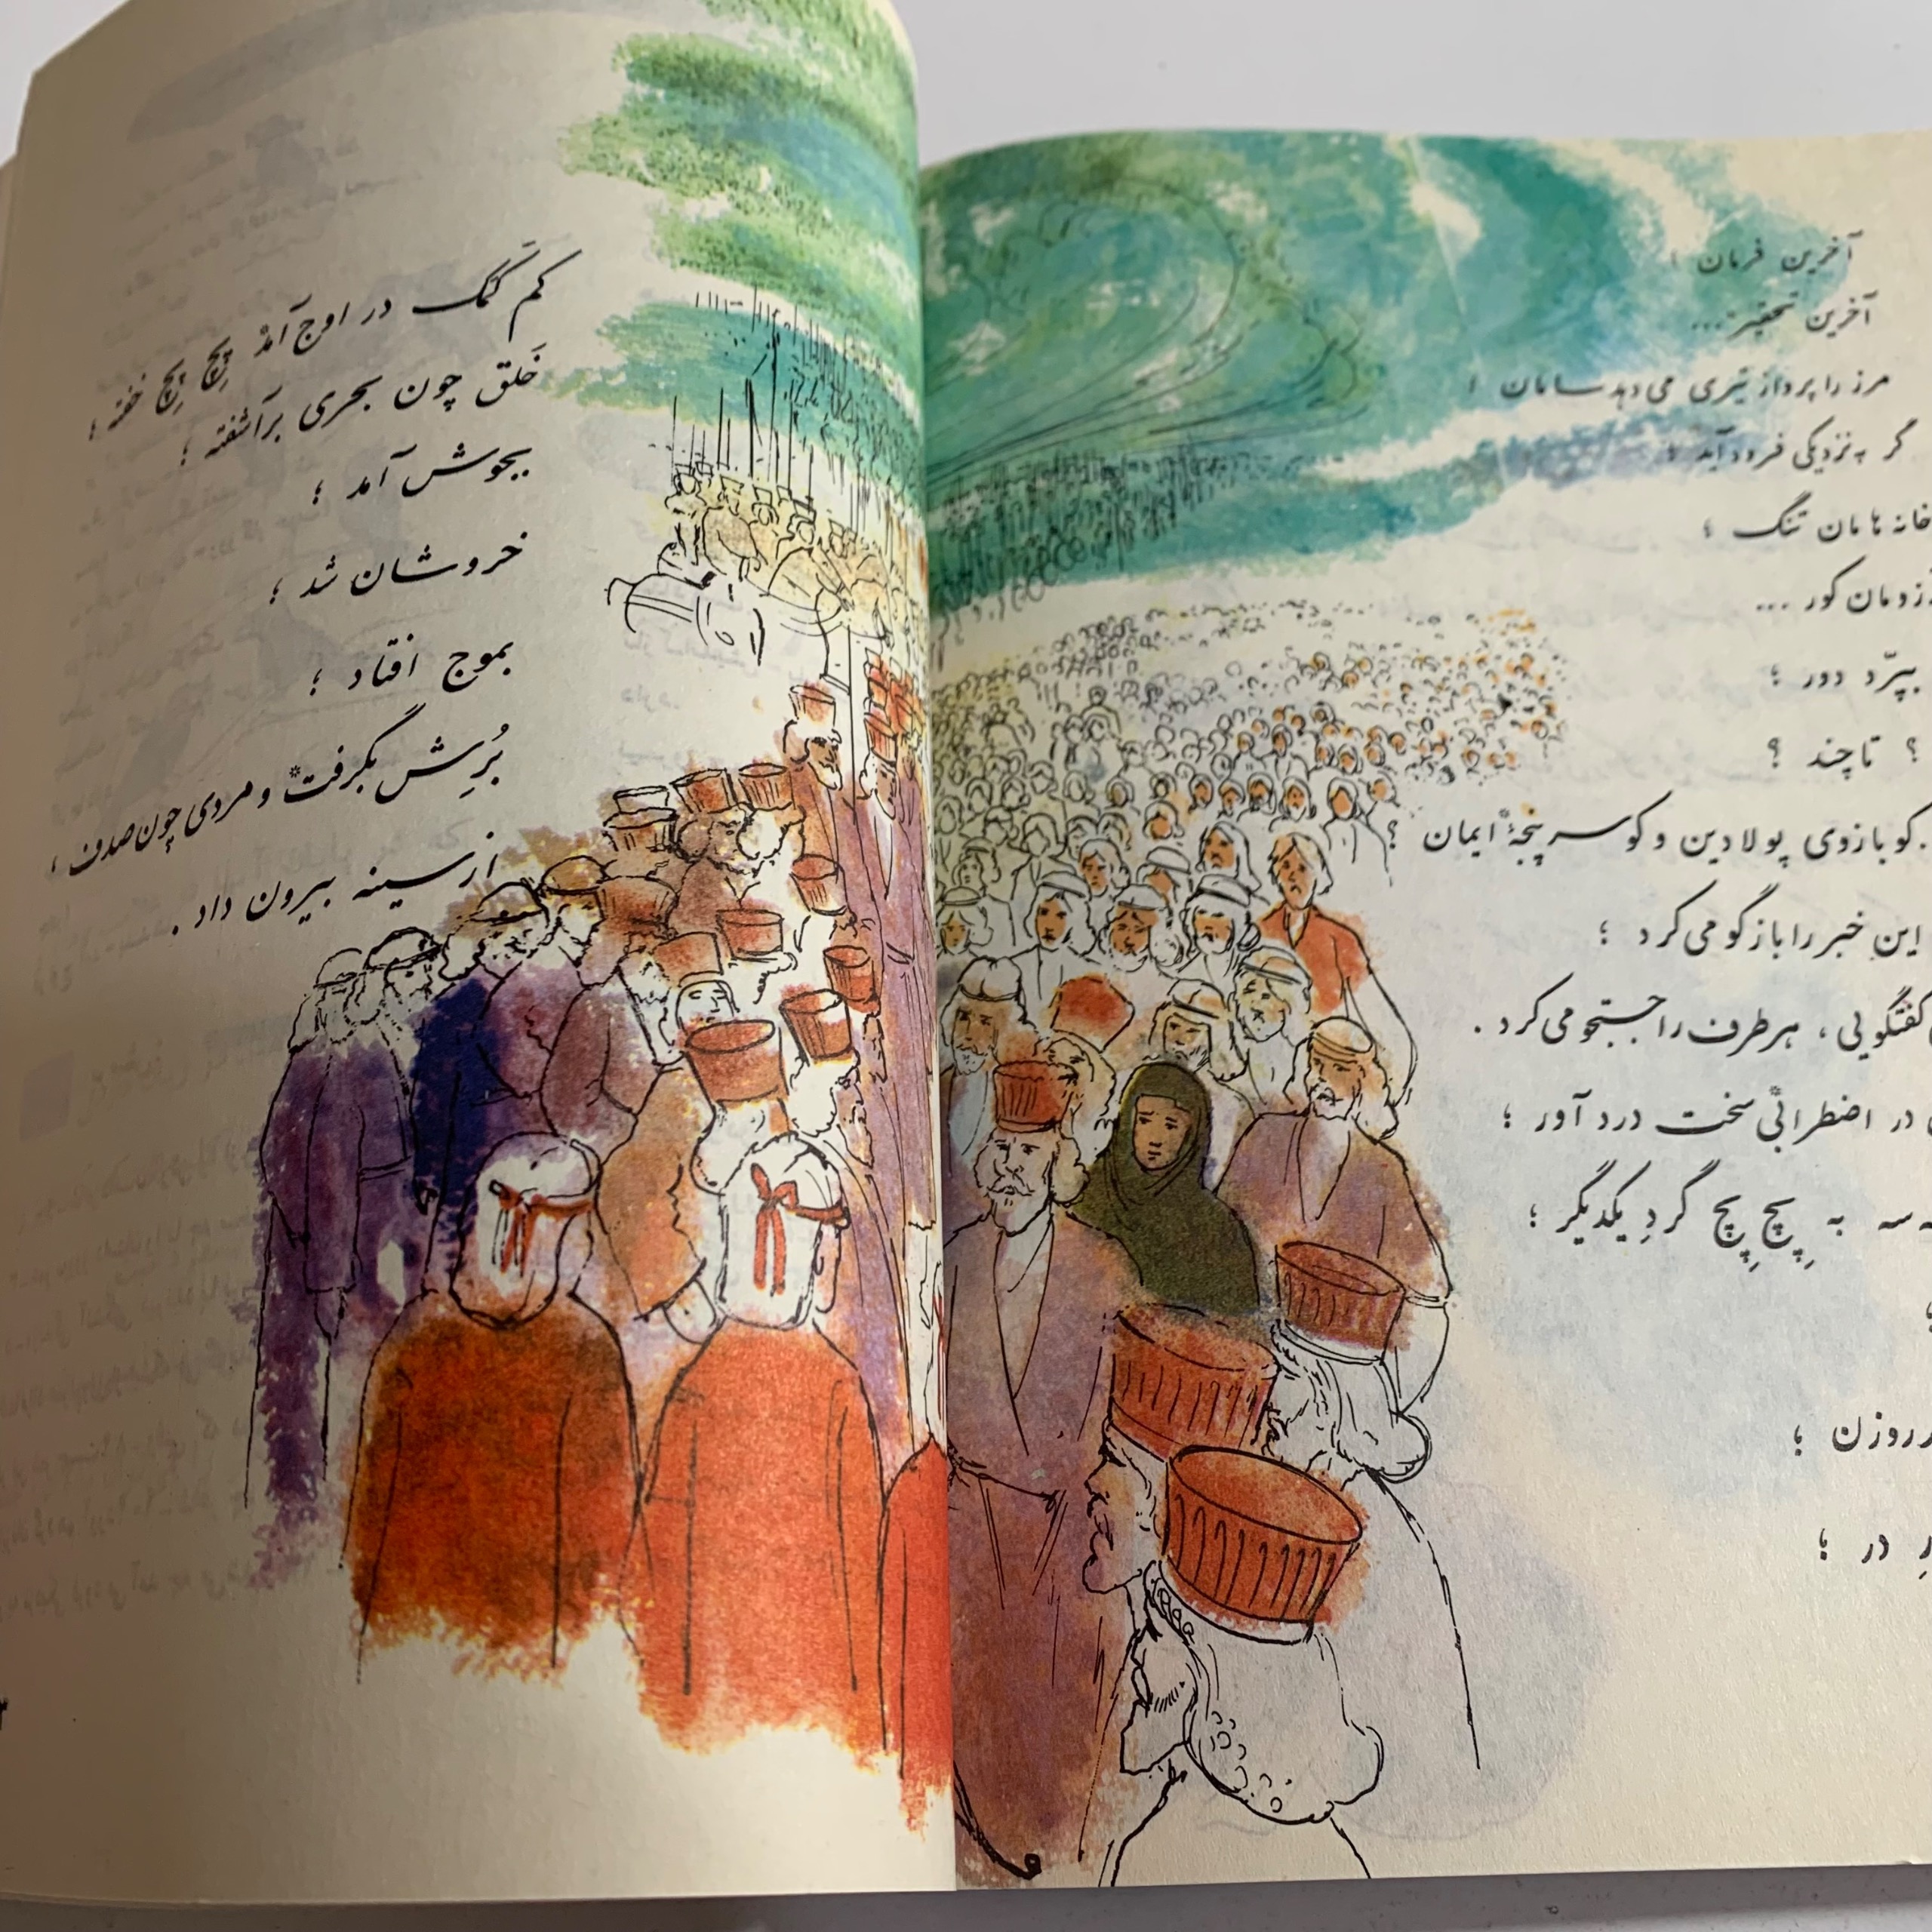 آخرین فرمان ؛
آخرین تحقیر...
مرز را پرواز تیری می‌دهد سامان ؛
گر به نزدیکی فرود آید ؛
خانه هامان تنگ ؛
کور ...
بپرّد دور ؛
؟ تا چند ؟
کو بازوی پولادین و کو سرپنجهٔ ایمان ؟
این خبر را بازگو می‌کرد ؛
گفتگویی ، هر طرف را جستجو می‌کرد .
در اضطرابی سخت درد آور ؛
سه به پِچ پِچ گردِ یکدیگر ؛
روزن ؛
در ؛
کم کَمَک در اوج آمد پِچ پِچ خفته ؛
خَلق چون بحری برآشفته ؛
بجوش آمد ؛
خروشان شد ؛
بموج افتاد ؛
بُرِش بگرفت* و مردی چون صدف ،
از سینه بیرون داد .